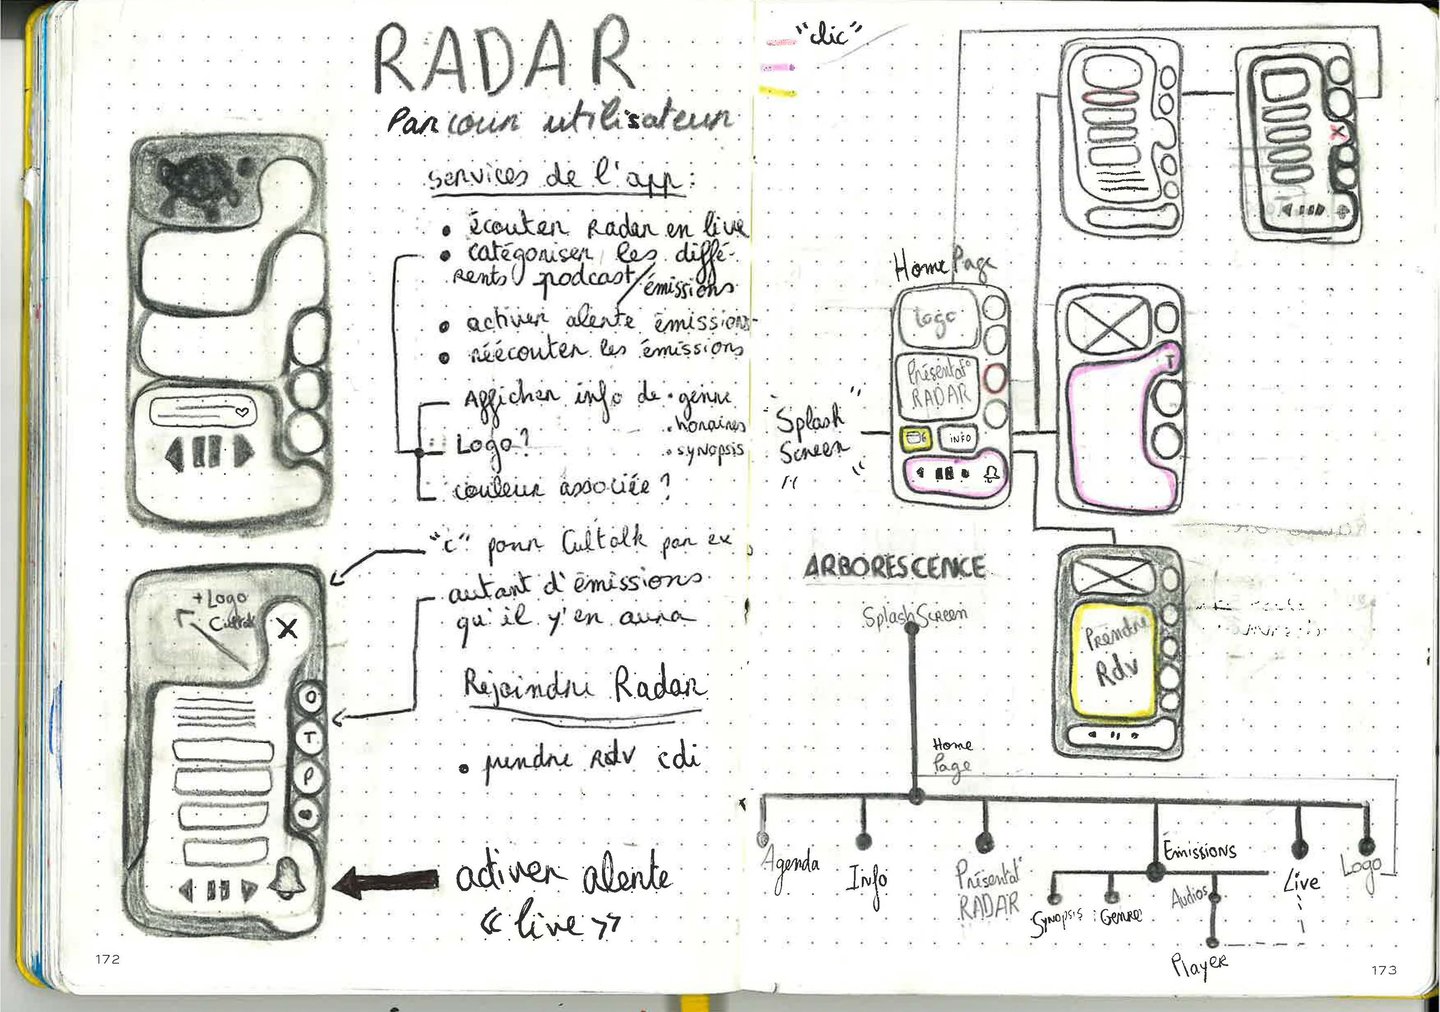 RADAR
Parcour utilisateur
services de l'app:
• écouter Radar en live
• catégoriser les diffé-
rents podcast/émissions
• activer alerte émissions
• réécouter les émissions
Afficher info de • genre
• horaires
• synopsis
Logo ?
couleur associée ?
"C" pour Cultalk par ex
autant d'émissions
qu'il y'en aura
Rejoindre Radar
• prendre Rdv cdi
activer alerte
« live »
+ Logo
Cultalk
X
O
T
P
172
"clic"
X
Home Page
Logo
Présentat°
RADAR
INFO
"Splash
Screen"
T
Prendre
Rdv
ARBORESCENCE
SplashScreen
Home
Page
Agenda
Info
Présentat°
RADAR
Émissions
Synopsis
Genre
Audios
Player
Live
Logo
173